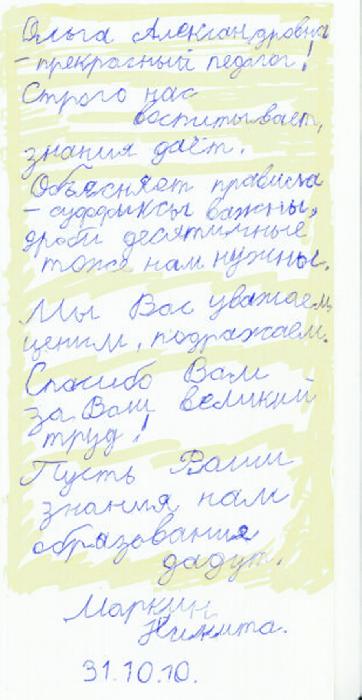 Ольга Александровна
- прекрасный педагог!
Строго нас
воспитывает,
знания даёт.
Объясняет правила
- суффиксы важны,
дроби десятичные
тоже нам нужны.
Мы Вас уважаем,
ценим, подражаем.
Спасибо Вам
за Ваш великий
труд!
Пусть Ваши
знания нам
образования
дадут.
Маркин
Никита.
31.10.10.